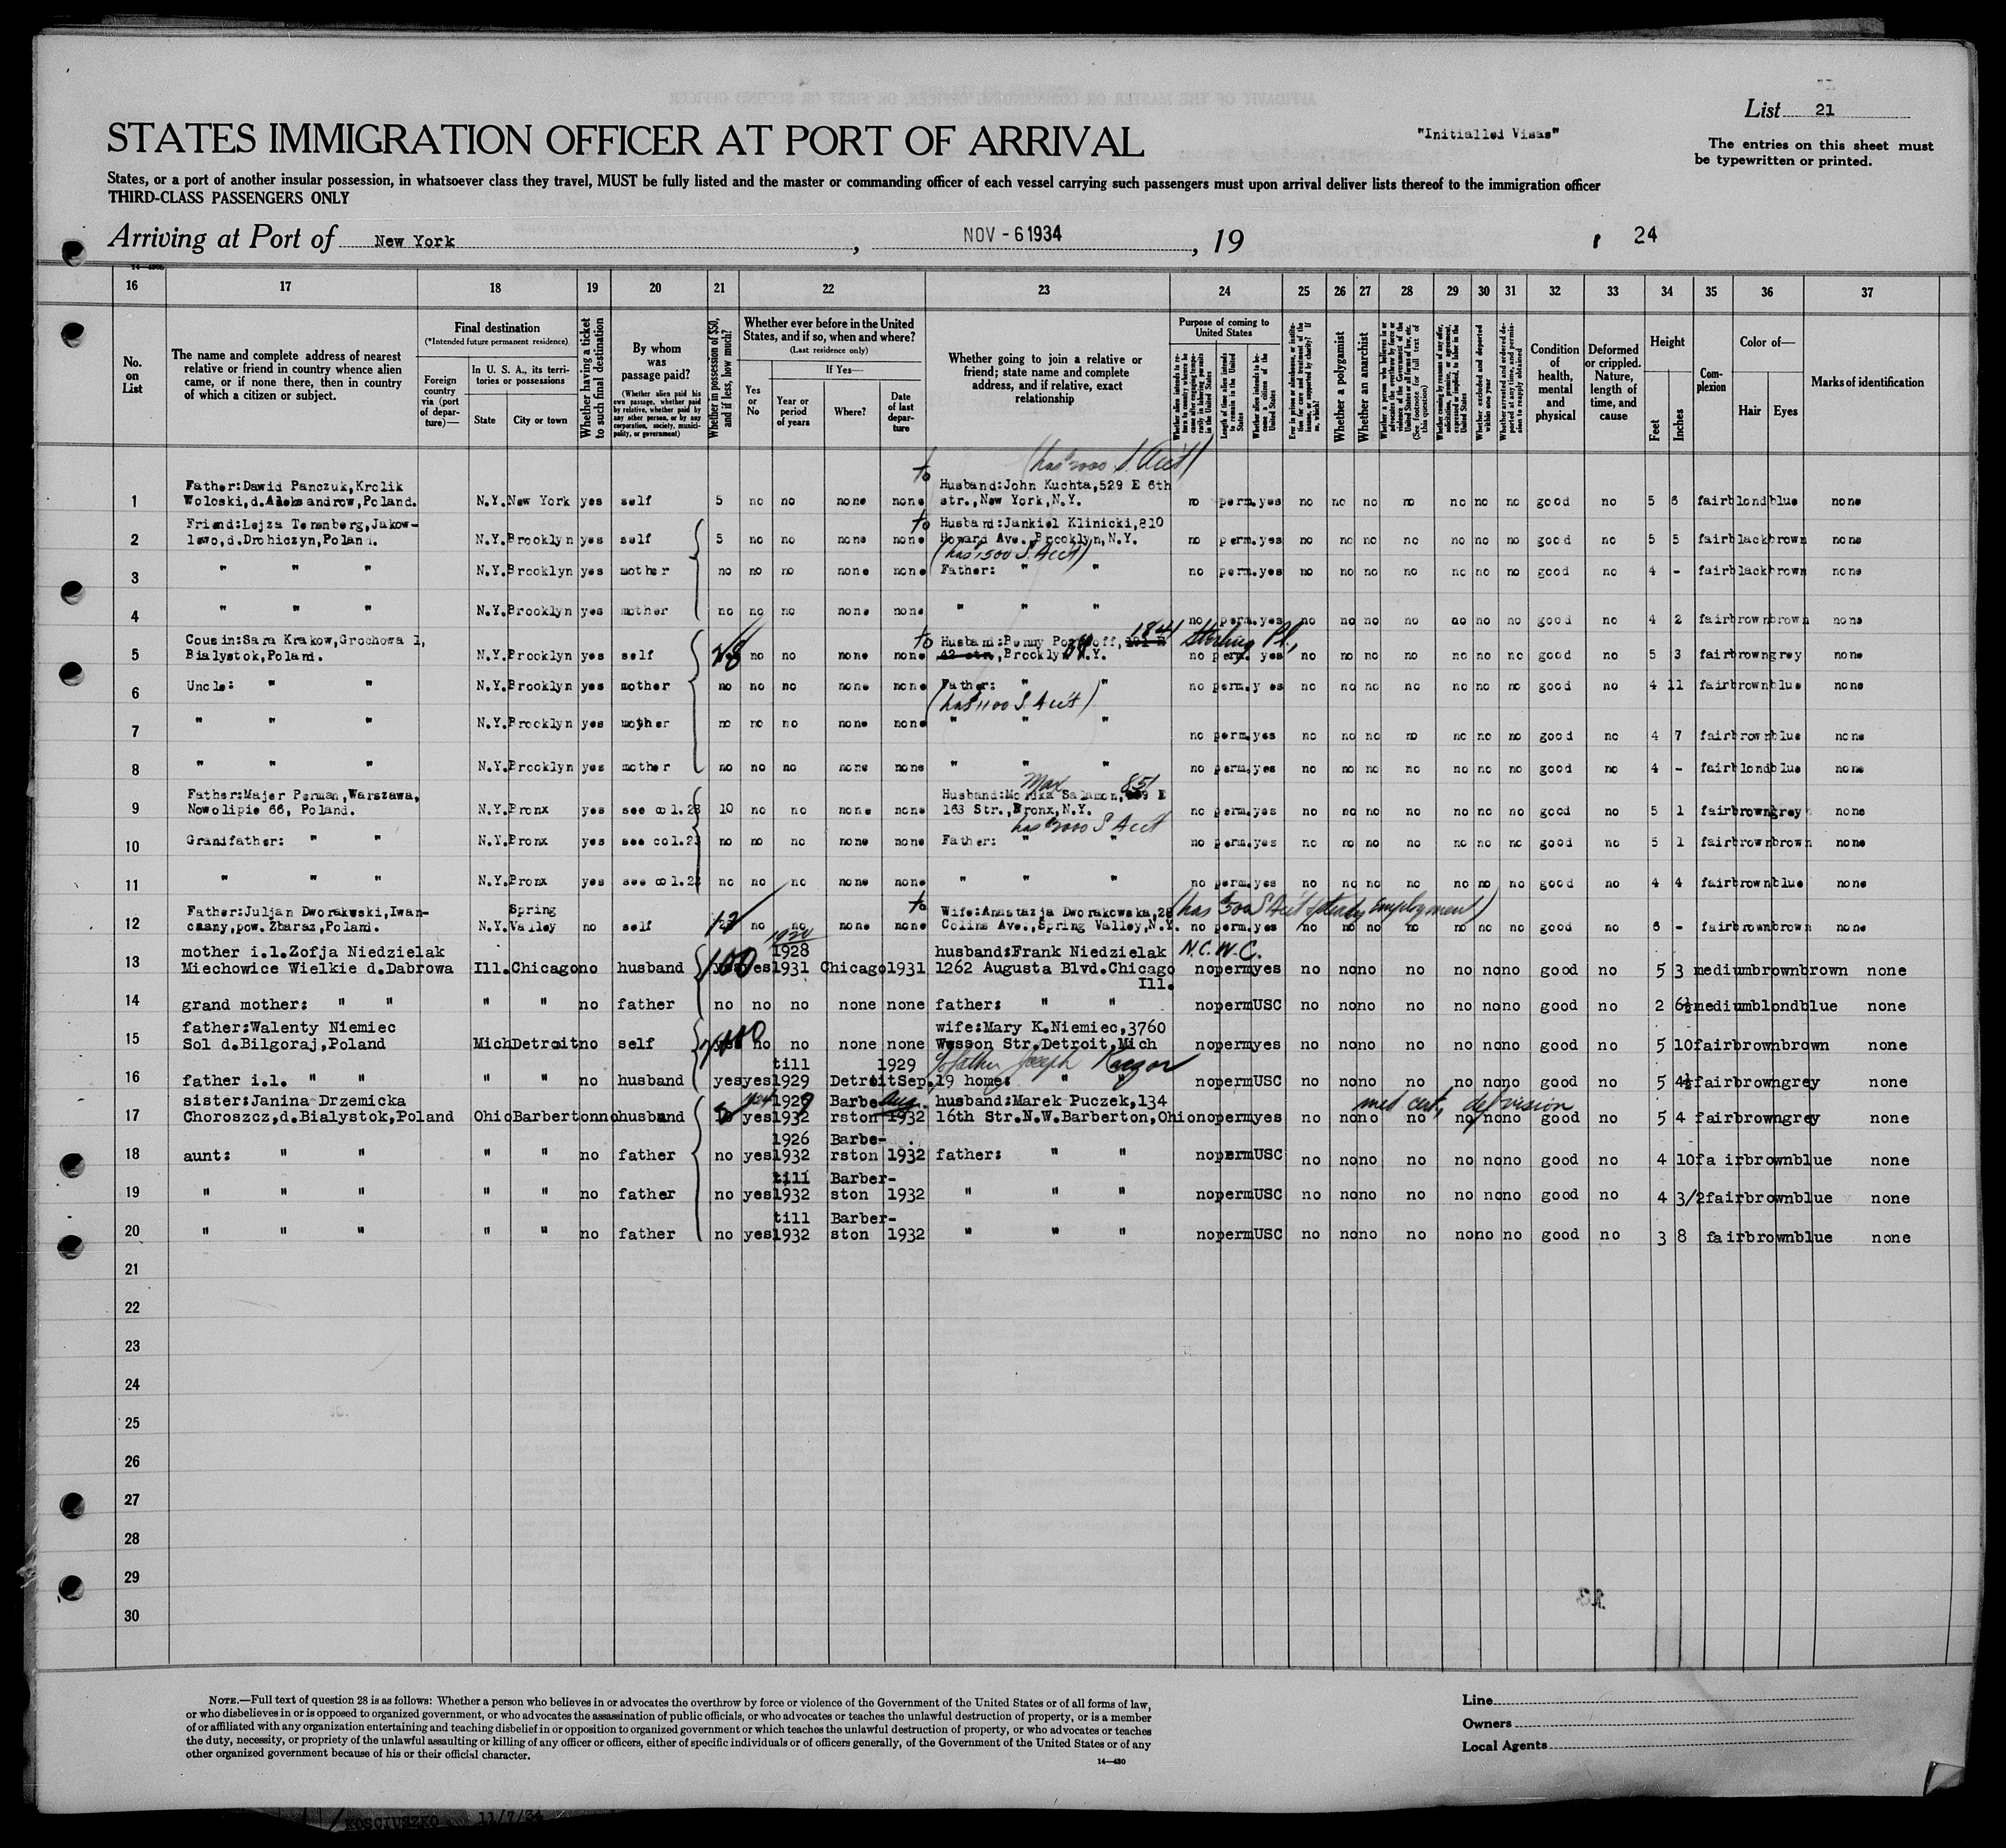 List 21
STATES IMMIGRATION OFFICER AT PORT OF ARRIVAL
"Initialled Visas"
The entries on this sheet must
be typewritten or printed.
States, or a port of another insular possession, in whatsoever class they travel, MUST be fully listed and the master or commanding officer of each vessel carrying such passengers must upon arrival deliver lists thereof to the immigration officer
THIRD-CLASS PASSENGERS ONLY
Arriving at Port of New York, NOV - 6 1934, 19 24
16 17 18 19 20 21 22 23 24 25 26 27 28 29 30 31 32 33 34 35 36 37
No. on List
The name and complete address of nearest relative or friend in country whence alien came, or if none there, then in country of which a citizen or subject.
Final destination
(*Intended future permanent residence)
Foreign country via (port of departure)—
In U. S. A., its territories or possessions
State
City or town
Whether having a ticket to such final destination
By whom was passage paid?
(Whether alien paid his own passage, whether paid by relative, whether paid by any other person, or by any corporation, society, municipality, or government)
Whether in possession of $50, and if less, how much?
Whether ever before in the United States, and if so, when and where?
(Last residence only)
Yes or No
If Yes—
Year or period of years
Where?
Date of last departure
Whether going to join a relative or friend; state name and complete address, and if relative, exact relationship
Purpose of coming to United States
Length of time alien intends to remain in the United States
Whether alien intends to become a citizen of the United States
Whether a polygamist
Whether an anarchist
Condition of health, mental and physical
Deformed or crippled. Nature, length of time, and cause
Height
Feet
Inches
Complexion
Color of—
Hair
Eyes
Marks of identification
(has 2000 S. Acct)
1 Father:Dawid Panczuk,Krolik to Husband:John Kuchta,529 E 6th
Woloski,d.Aleksandrow,Poland. N.Y. New York yes self 5 no no none none str.,New York,N.Y. no perm. yes no no no no no no no good no 5 6 fair blond blue none
Friend:Lejza Tenenberg,Jakow- to Husband:Jankiel Klinicki,810
2 lewo,d.Drohiczyn,Poland. N.Y. Brooklyn yes self 5 no no none none Howard Ave.,Brooklyn,N.Y. no perm. yes no no no no no no no good no 5 5 fair black brown none
(has 1500 S. Acct)
3 " " " N.Y. Brooklyn yes mother no no no none none Father: " " no perm. yes no no no no no no no good no 4 - fair black brown none
4 " " " N.Y. Brooklyn yes mother no no no none none " " " no perm. yes no no no no no no no good no 4 2 fair brown brown none
Cousin:Sara Krakow,Grochowa 1, to Husband:Benny 1841 Sterling Pl.,
5 Bialystok,Poland. N.Y. Brooklyn yes self 28 no no none none 42 str.,Brooklyn,N.Y. no perm. yes no no no no no no no good no 5 3 fair brown grey none
6 Uncle: " " N.Y. Brooklyn yes mother no no no none none Father: " " no perm. yes no no no no no no no good no 4 11 fair brown blue none
(has 1100 S Acct)
7 " " " N.Y. Brooklyn yes mother no no no none none " " " no perm. yes no no no no no no no good no 4 7 fair brown blue none
8 " " " N.Y. Brooklyn yes mother no no no none none " " " no perm. yes no no no no no no no good no 4 - fair blond blue none
Max 851
Father:Majer Perman,Warszawa, Husband: Salamon, E
9 Nowolipie 66, Poland. N.Y. Bronx yes see col.23 10 no no none none 163 Str.,Bronx,N.Y. no perm. yes no no no no no no no good no 5 1 fair brown grey none
has 2000 S Acct
10 Grandfather: " " N.Y. Bronx yes see col.23 no no no none none Father: " " no perm. yes no no no no no no no good no 5 1 fair brown brown none
11 " " " N.Y. Bronx yes see col.23 no no no none none " " " no perm. yes no no no no no no no good no 4 4 fair brown blue none
Father:Juljan Dworakowski,Iwan- Spring to Wife:Anastazja Dworakowska,28 (has 500 S Acct steady employment)
12 czany,pow.Zbaraz,Poland. N.Y. Valley no self 12 no no none none Colins Ave.,Spring Valley,N.Y. no perm. yes no no no no no no no good no 6 - fair brown brown none
mother i.l.Zofja Niedzielak 1928 husband:Frank Niedzielak N.C.W.C.
13 Miechowice Wielkie d.Dabrowa Ill. Chicago no husband 100 yes 1931 Chicago 1931 1262 Augusta Blvd.Chicago no perm yes no no no no no no no good no 5 3 medium brown brown none
Ill.
14 grand mother: " " " " no father no no no none none father: " " no perm USC no no no no no no no good no 2 6½ medium blond blue none
father:Walenty Niemiec wife:Mary K.Niemiec,3760
15 Sol d.Bilgoraj,Poland Mich Detroit no self yes no no none none Wesson Str.Detroit,Mich no perm yes no no no no no no no good no 5 10 fair brown brown none
till 1929 father Joseph
16 father i.l. " " " " no husband yes yes 1929 Detroit Sep.19 home: " " no perm USC no no no no no no no good no 5 4½ fair brown grey none
sister:Janina Drzemicka Barbe- Aug. husband:Marek Puczek,134 med cert, def vision
17 Choroszcz,d.Bialystok,Poland Ohio Barberton no husband yes 1932 rston 1932 16th Str.N.W.Barberton,Ohio no perm yes no no no no no no no good no 5 4 fair brown grey none
1926 Barbe-
18 aunt: " " " " no father no yes 1932 rston 1932 father: " " no perm USC no no no no no no no good no 4 10 fair brown blue none
till Barber-
19 " " " " " no father no yes 1932 ston 1932 " " " no perm USC no no no no no no no good no 4 3/2 fair brown blue none
till Barber-
20 " " " " " no father no yes 1932 ston 1932 " " " no perm USC no no no no no no no good no 3 8 fair brown blue none
21
22
23
24
25
26
27
28
29
30
NOTE.—Full text of question 28 is as follows: Whether a person who believes in or advocates the overthrow by force or violence of the Government of the United States or of all forms of law,
or who disbelieves in or is opposed to organized government, or who advocates the assassination of public officials, or who advocates or teaches the unlawful destruction of property, or is a member
of or affiliated with any organization entertaining and teaching disbelief in or opposition to organized government or which teaches the unlawful destruction of property, or who advocates or teaches
the duty, necessity, or propriety of the unlawful assaulting or killing of any officer or officers, either of specific individuals or of officers generally, of the Government of the United States or of any
other organized government because of his or their official character.
14—430
Line
Owners
Local Agents
KOSCIUSZKO 11/7/34